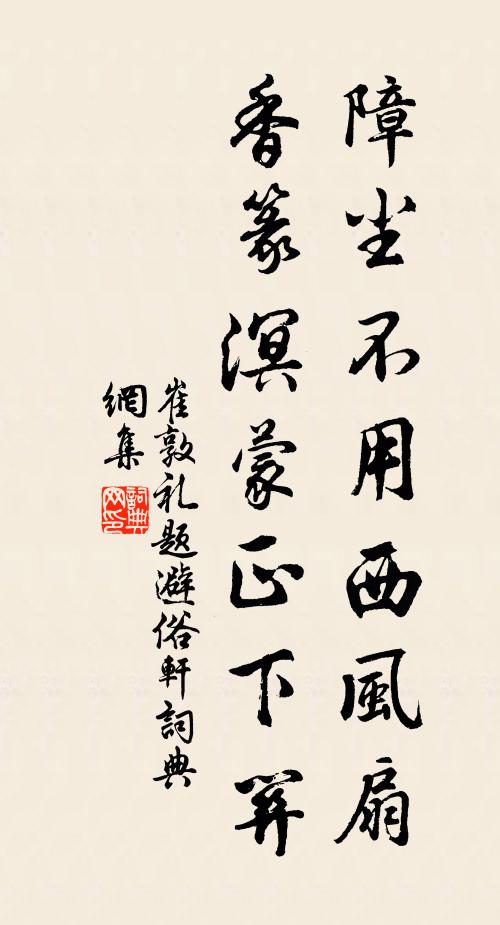 障尘不用西風扇
香篆溟蒙正下
崔敦礼题避俗軒詞典
網集
詞典
网印